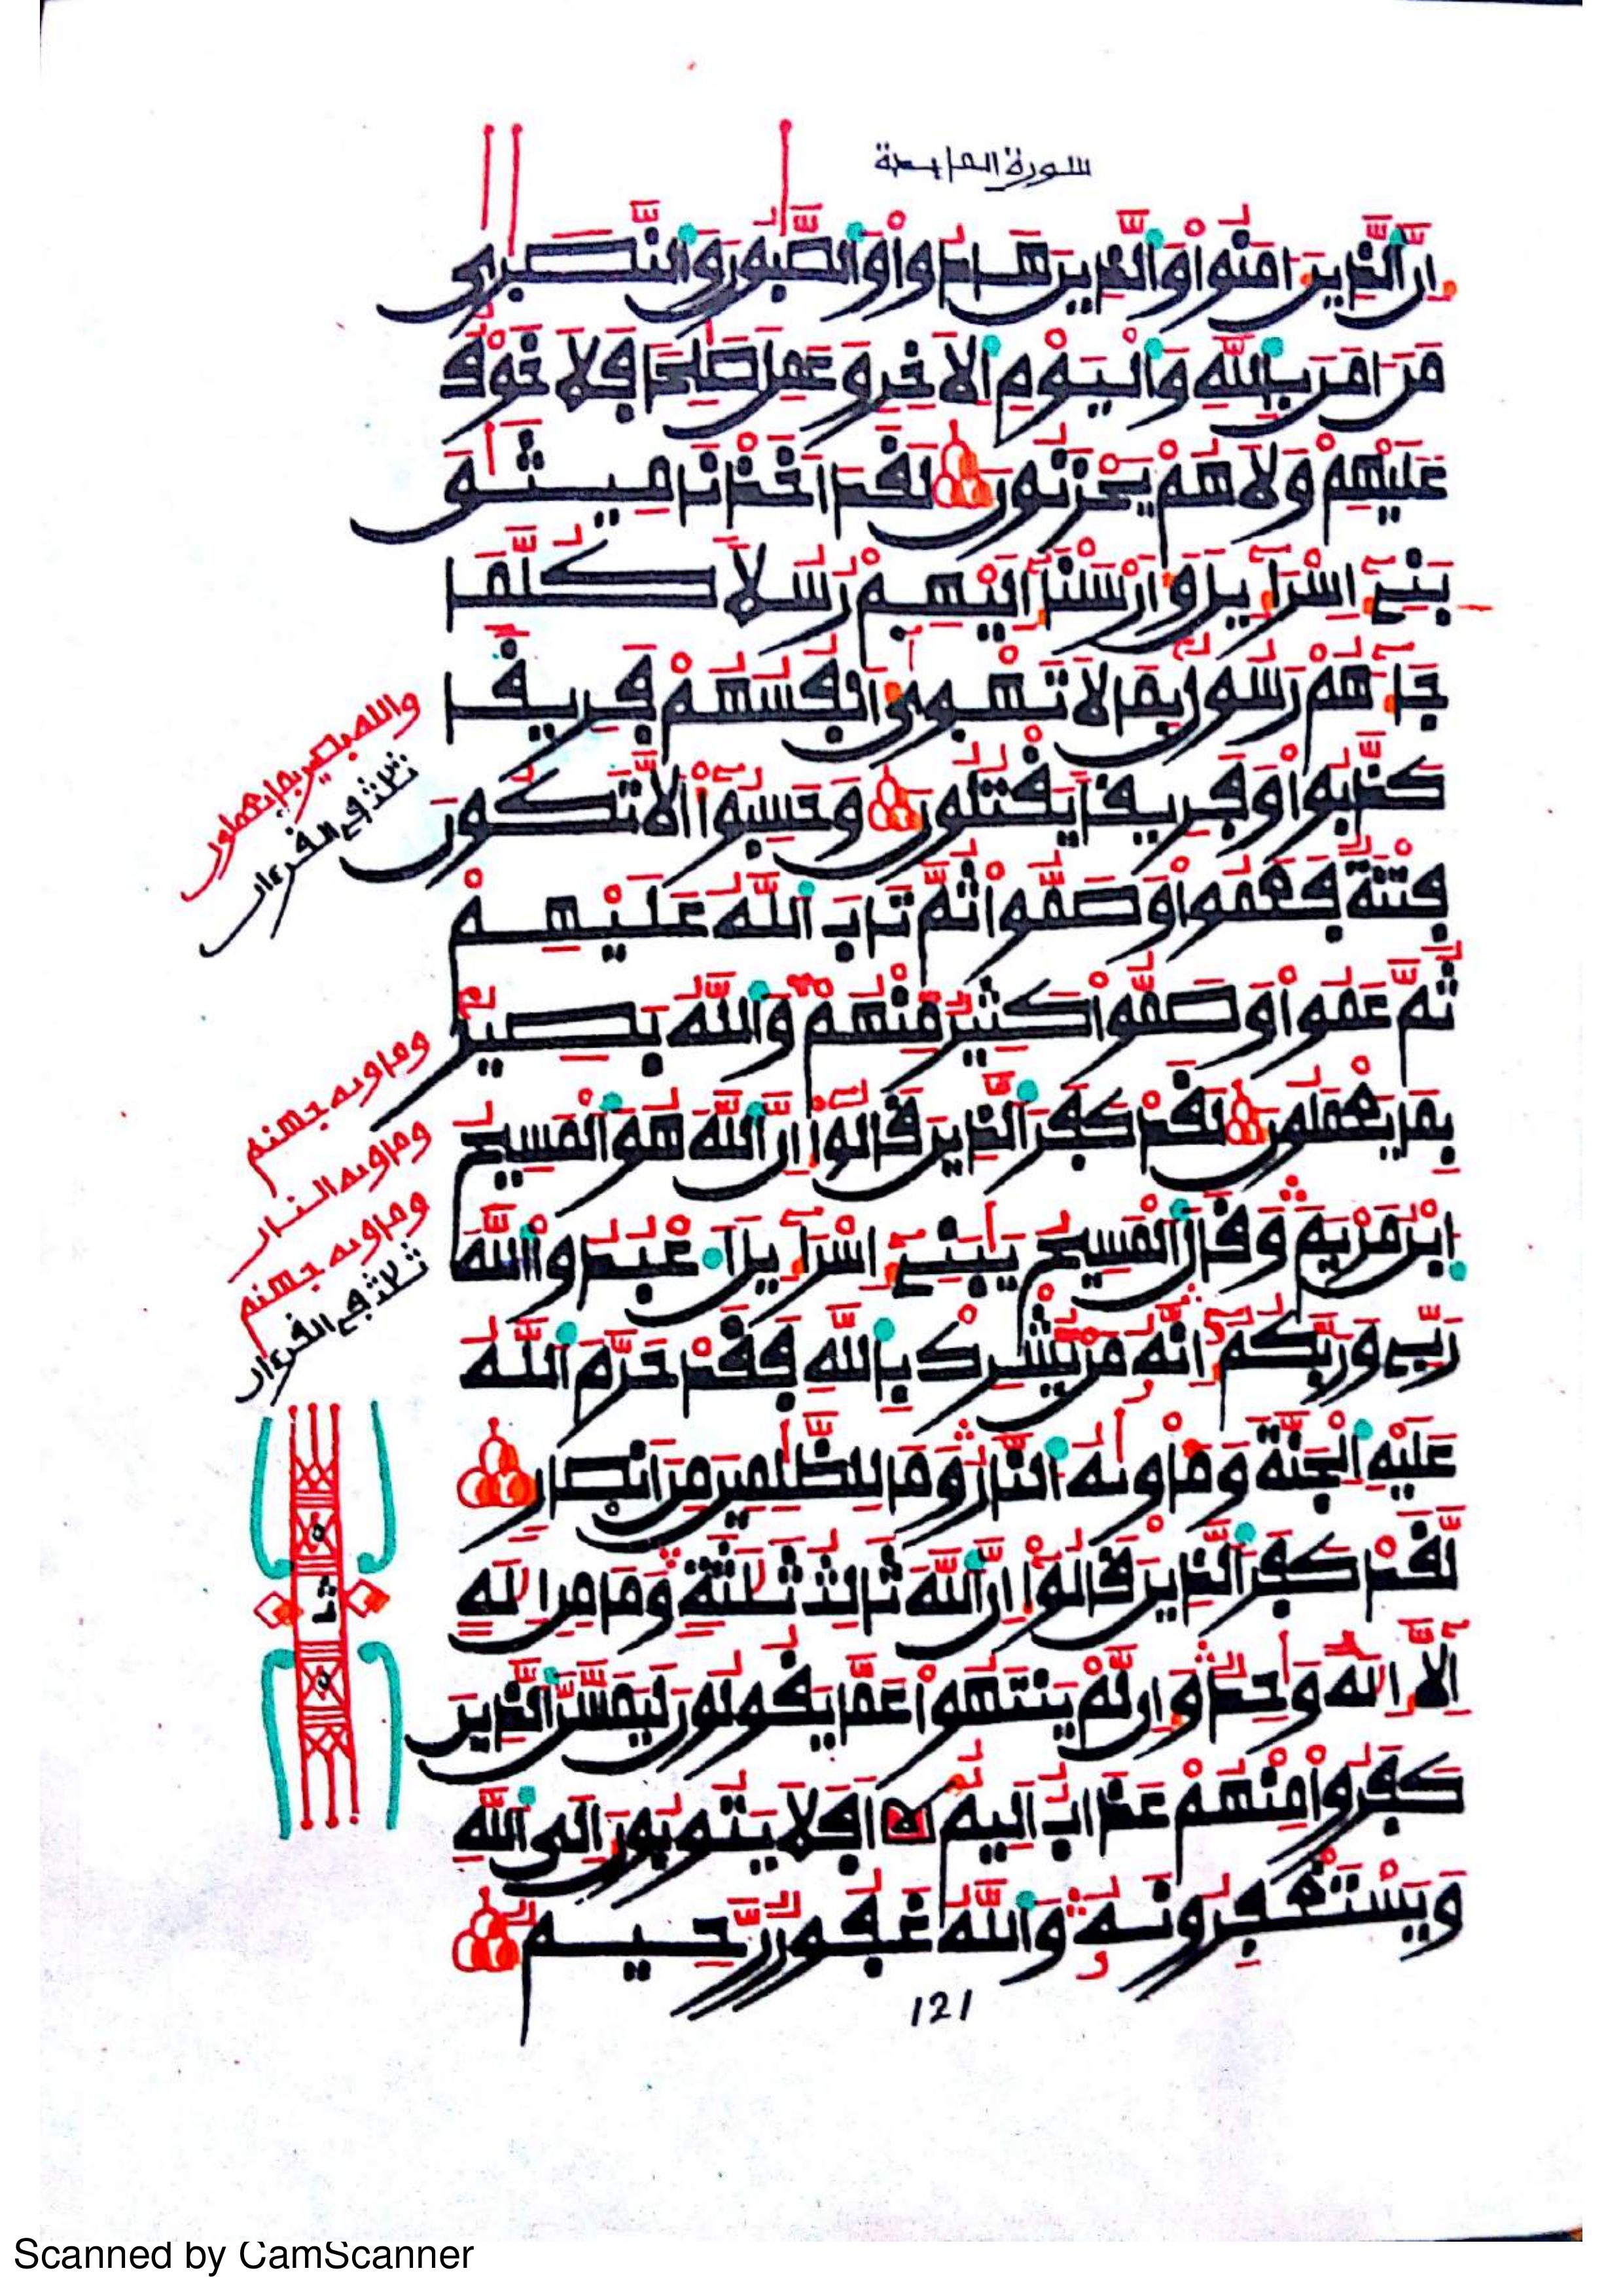 سورة المايدة
إن الذين ءامنوا والذين هادوا والصبون والنصرى
من ءامن بالله واليوم الاخر وعمل صلحا فلا خوف
عليهم ولا هم يحزنون لقد اخذنا ميثق
بنے إسرآءيل وأرسلنآ إليهم رسلا كلما
جآءهم رسول بما لا تهوى أنفسهم فريفا
كذبوا وفريفا يقتلون وحسبوا ألا تكون
فتنة فعموا وصموا ثم تاب الله عليهم
ثم عموا وصموا كثير منهم والله بصير
بما يعملون لقد كفر الذين قالوا إن الله هو المسيح
ابن مريم وقال المسيح يبنے إسرآءيل اعبدوا الله
ربے وربكم إنه من يشرك بالله فقد حرم الله
عليه الجنة ومأويه النار وما للظلمين من انصار
لقد كفر الذين قالوا إن الله ثالث ثلثة وما من اله
إلا إله وحد وإن لم ينتهوا عما يقولون ليمسن الذين
كفروا منهم عذاب اليم افلا يتوبون إلى الله
ويستغفرونه والله غفور رحيم
121
والله بصير بما يعملون
ثلاث في القرءان
ومأويه جهنم
ومأويه النار
ومأويه جهنم
ثلاث في القرءان
Scanned by CamScanner